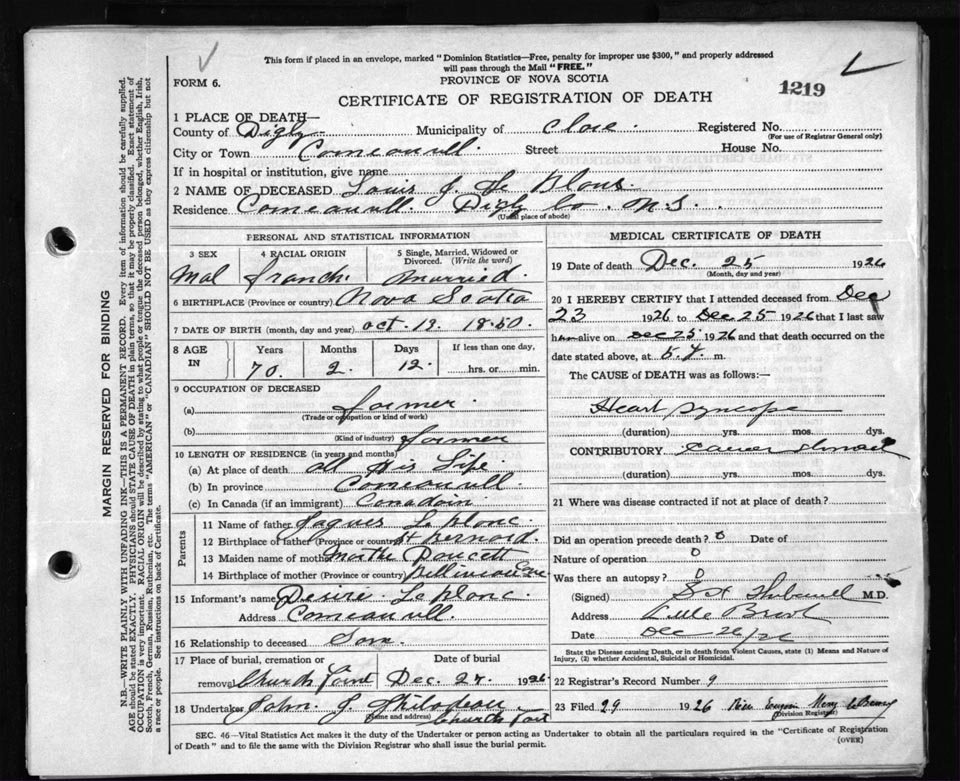 This form if placed in an envelope, marked "Dominion Statistics—Free, penalty for improper use $300," and properly addressed
will pass through the Mail "FREE."
FORM 6.
PROVINCE OF NOVA SCOTIA
1219
CERTIFICATE OF REGISTRATION OF DEATH
1 PLACE OF DEATH—
County of Digby Municipality of Clare. Registered No.
(For use of Registrar General only)
City or Town Comeauvill. Street House No.
If in hospital or institution, give name
2 NAME OF DECEASED Louis J. Le Blanc.
Residence Comeauvill. Digby Co. N.S.
(Usual place of abode)
PERSONAL AND STATISTICAL INFORMATION
3 SEX 4 RACIAL ORIGIN 5 Single, Married, Widowed or Divorced. (Write the word)
Mal Franch. Married.
6 BIRTHPLACE (Province or country) Nova Scotia
7 DATE OF BIRTH (month, day and year) Oct. 13. 1850.
8 AGE IN Years Months Days If less than one day,
70. 2. 12. hrs. or min.
9 OCCUPATION OF DECEASED
(a) Farmer.
(Trade or occupation or kind of work)
(b) Farmer
(Kind of industry)
10 LENGTH OF RESIDENCE (in years and months)
(a) At place of death all His Life
(b) In province Comeauvill.
(c) In Canada (if an immigrant) Canadain
Parents
11 Name of father Jaques Leblanc.
12 Birthplace of father (Province or country) St Bernard.
13 Maiden name of mother Marthe Doucett
14 Birthplace of mother (Province or country) Bellineau Cove
15 Informant's name Desire Leblanc.
Address Comeauvill.
16 Relationship to deceased Son.
17 Place of burial, cremation or Date of burial
removal Church Point Dec. 27. 1926
18 Undertaker John J. Thibodeau
(Name and address) Church Point
MEDICAL CERTIFICATE OF DEATH
19 Date of death Dec. 25 1926
(Month, day and year)
20 I HEREBY CERTIFY that I attended deceased from Dec
23 1926 to Dec 25 1926 that I last saw
h alive on Dec 25 1926 and that death occurred on the
date stated above, at m.
The CAUSE of DEATH was as follows:—
Heart syncope
(duration) yrs. mos. dys.
CONTRIBUTORY
(duration) yrs. mos. dys.
21 Where was disease contracted if not at place of death?
Did an operation precede death? 0 Date of
Nature of operation 0
Was there an autopsy? 0
(Signed) M.D.
Address Little Brook
Date Dec 26/26
State the Disease causing Death, or in death from Violent Causes, state (1) Means and Nature of
Injury, (2) whether Accidental, Suicidal or Homicidal.
22 Registrar's Record Number 9
23 Filed 29 1926
(Division Registrar)
SEC. 46—Vital Statistics Act makes it the duty of the Undertaker or person acting as Undertaker to obtain all the particulars required in the "Certificate of Registration
of Death" and to file the same with the Division Registrar who shall issue the burial permit.
(OVER)
MARGIN RESERVED FOR BINDING
N.B.—WRITE PLAINLY WITH UNFADING INK—THIS IS A PERMANENT RECORD. Every item of information should be carefully supplied.
AGE should be stated EXACTLY. PHYSICIANS should STATE CAUSE OF DEATH in plain terms, so that it may be properly classified. Exact statement of
OCCUPATION is very important. RACIAL ORIGIN will be described by stating to what people or tongue the deceased person belonged, whether English, Irish,
Scotch, French, German, Russian, Ruthenian, etc. The terms "AMERICAN" or "CANADIAN" SHOULD NOT BE USED as they express citizenship but not
a race or people. See instructions on back of Certificate.